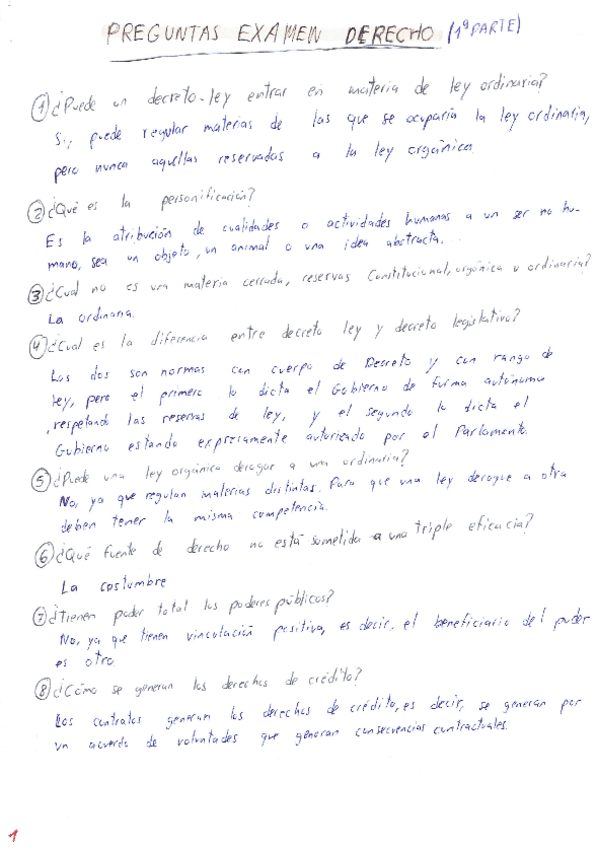 PREGUNTAS EXAMEN DERECHO (1ª PARTE)
① ¿Puede un decreto-ley entrar en materia de ley ordinaria?
Si, puede regular materias de las que se ocuparía la ley ordinaria,
pero nunca aquellas reservadas a la ley orgánica
② ¿Qué es la personificación?
Es la atribución de cualidades o actividades humanas a un ser no hu-
mano, sea un objeto, un animal o una idea abstracta.
③ ¿Cual no es una materia cerrada, reservas Constitucional, orgánica u ordinaria?
La ordinaria.
④ ¿Cual es la diferencia entre decreto ley y decreto legislativo?
Los dos son normas con cuerpo de Decreto y con rango de
ley, pero el primero lo dicta el Gobierno de forma autónoma
, respetando las reservas de ley, y el segundo lo dicta el
Gobierno estando expresamente autorizado por el Parlamento.
⑤ ¿Puede una ley orgánica derogar a una ordinaria?
No, ya que regulan materias distintas. Para que una ley derogue a otra
deben tener la misma competencia.
⑥ ¿Qué fuente de derecho no está sometida a una triple eficacia?
La costumbre
⑦ ¿Tienen poder total los poderes públicos?
No, ya que tienen vinculación positiva, es decir, el beneficiario del poder
es otro
⑧ ¿Cómo se generan los derechos de crédito?
Los contratos generan los derechos de crédito, es decir, se generan por
un acuerdo de voluntades que generan consecuencias contractuales.
1